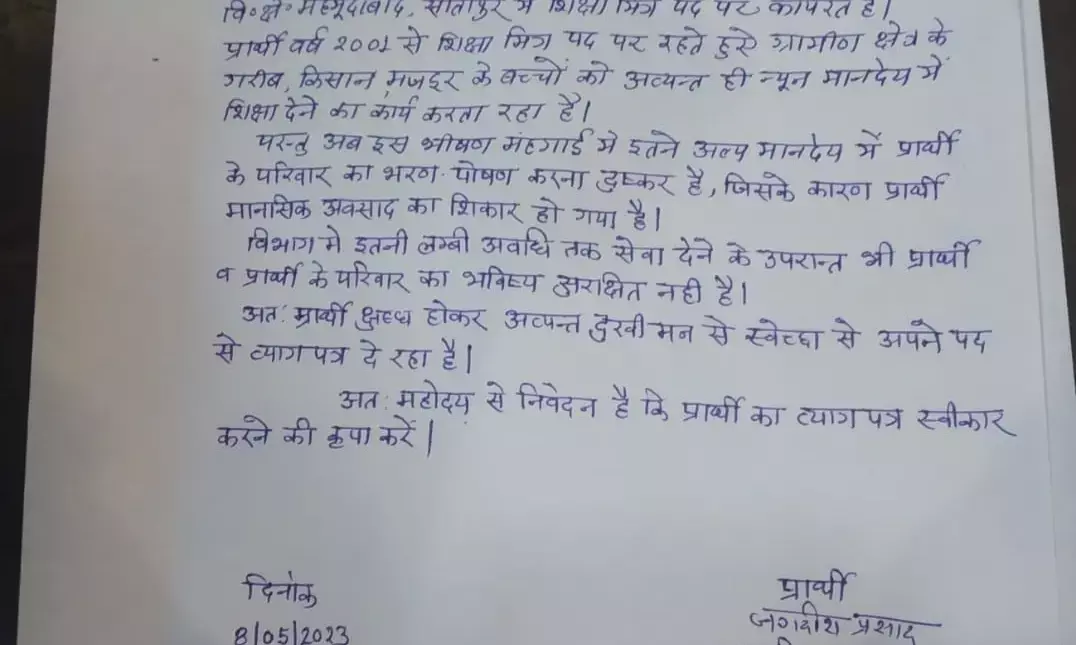 वि०क्षे० महमूदाबाद, सीतापुर में शिक्षा मित्र पद पर कार्यरत है।
प्रार्थी वर्ष 2001 से शिक्षा मित्र पद पर रहते हुऐ ग्रामीण क्षेत्र के
गरीब, किसान मजदूर के बच्चों को अत्यन्त ही न्यून मानदेय में
शिक्षा देने का कार्य करता रहा है।
परन्तु अब इस भीषण मंहगाई मे इतने अल्प मानदेय में प्रार्थी
के परिवार का भरण-पोषण करना दुष्कर है, जिसके कारण प्रार्थी
मानसिक अवसाद का शिकार हो गया है।
विभाग मे इतनी लम्बी अवधि तक सेवा देने के उपरान्त भी प्रार्थी
व प्रार्थी के परिवार का भविष्य सुरक्षित नही है।
अतः प्रार्थी क्षुब्ध होकर अत्यन्त दुखी मन से स्वेच्छा से अपने पद
से त्यागपत्र दे रहा है।
अतः महोदय से निवेदन है कि प्रार्थी का त्यागपत्र स्वीकार
करने की कृपा करें।
दिनांक
प्रार्थी
8/05/2023
जगदीश प्रसाद